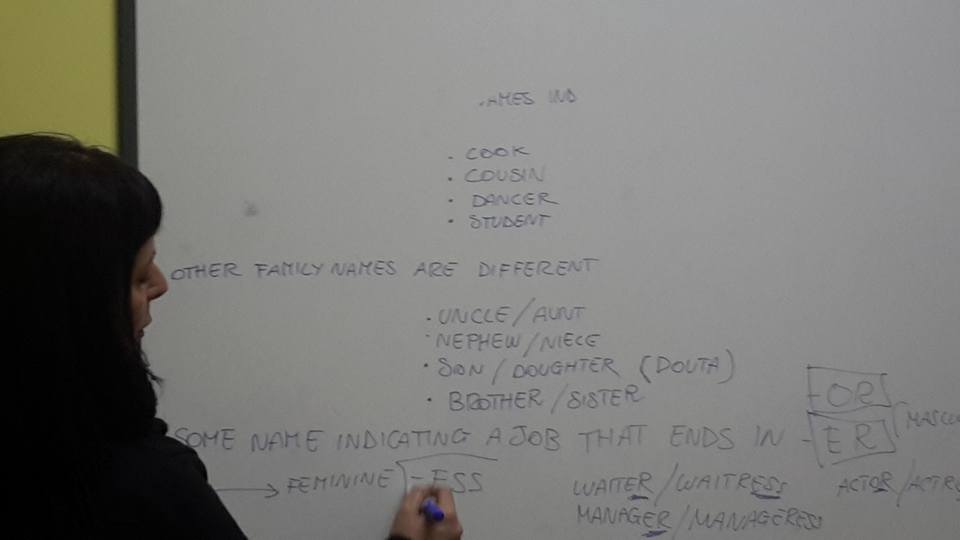 AMES IND
· COOK
· COUSIN
· DANCER
· STUDENT
OTHER FAMILY NAMES ARE DIFFERENT
· UNCLE/AUNT
· NEPHEW/NIECE
· SON/DOUGHTER (DOUTA)
· BROTHER/SISTER
SOME NAME INDICATING A JOB THAT ENDS IN -OR -ER MASCU
→ FEMININE -ESS
WAITER/WAITRESS ACTOR/ACTR
MANAGER/MANAGERESS